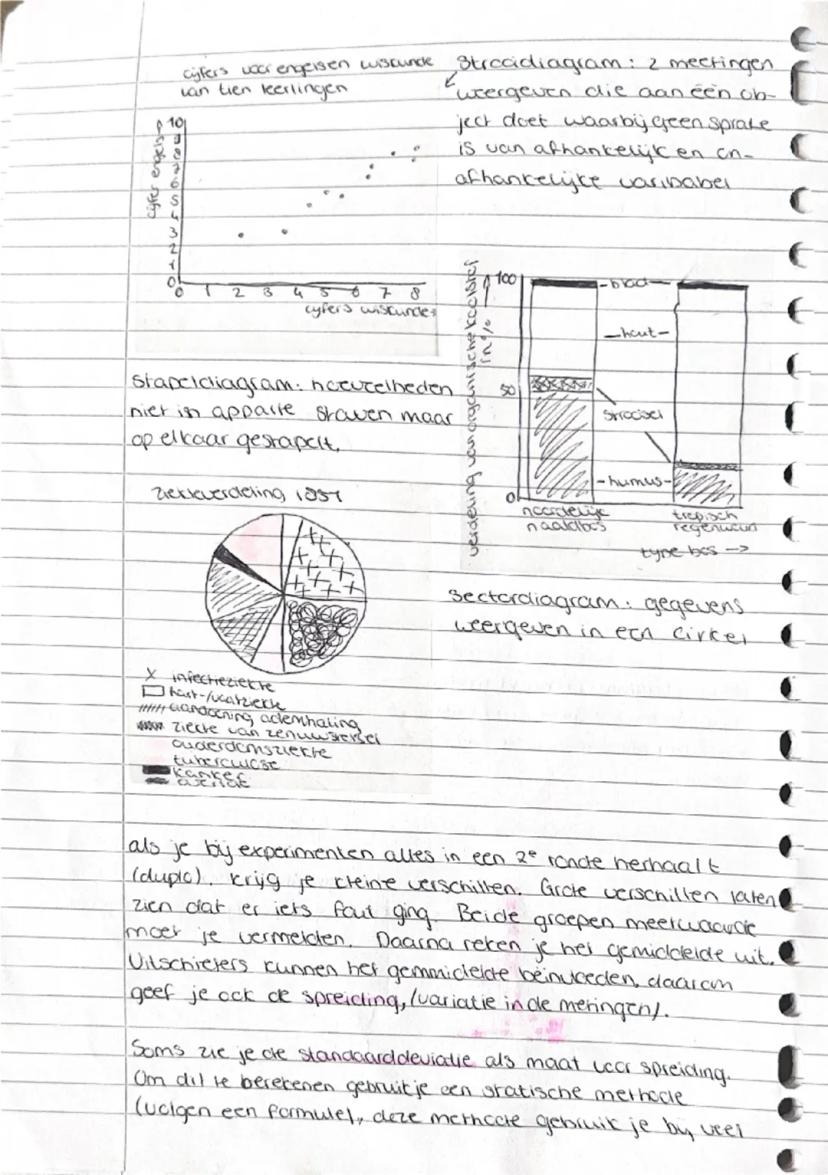 cijfers voor engels en wiskunde
van tien leerlingen
cijfer engels →
10
9
8
7
6
5
4
3
2
1
0
0 1 2 3 4 5 6 7 8
cijfers wiskunde→
Strooidiagram: 2 meetingen
weergeven die aan één ob-
ject doet waarbij geen sprake
is van afhankelijk en on-
afhankelijke variabel
verdeling van organische koolstof
in %
100
50
0
-blad-
-hout-
strooisel
-humus-
noordelijk
naaldbos
tropisch
regenwoud
type bos →
Stapeldiagram: hoeveelheden
niet in apparte staven maar
op elkaar gestapelt.
ziekteverdeling
X infectieziekte
hart-/vaatziekte
aandoening ademhaling
ziekte van zenuwstelsel
ouderdomsziekte
tuberculose
kanker
overige
Sectordiagram: gegevens
weergeven in een cirkel
als je bij experimenten alles in een 2e ronde herhaalt
(duplo), krijg je kleine verschillen. Grote verschillen laten
zien dat er iets fout ging. Beide groepen meetwaarde
moet je vermelden. Daarna reken je het gemiddelde uit.
Uitschieters kunnen het gemmidelde beïnvloeden, daarom
geef je ook de spreiding, (variatie in de metingen).
Soms zie je de standaarddeviatie als maat voor spreiding.
Om dit te berekenen gebruit je een statische methode
(volgen een formule), deze methode gebruik je bij veel